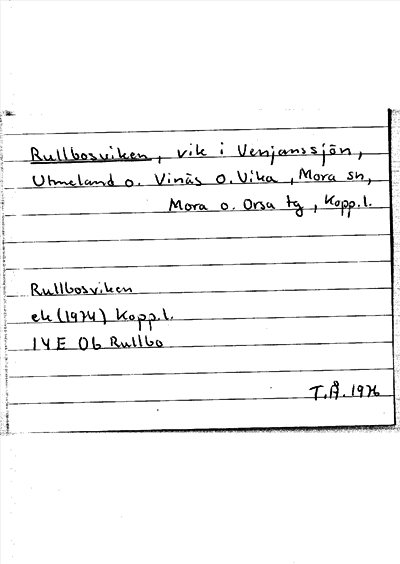 Rullbosviken, vik i Venjanssjön,
Utmeland o. Vinäs o. Vika, Mora sn,
Mora o. Orsa tg, Kopp.l.
Rullbosviken
ek (1974) Kopp.l.
14E 0b Rullbo
T.Å. 1976